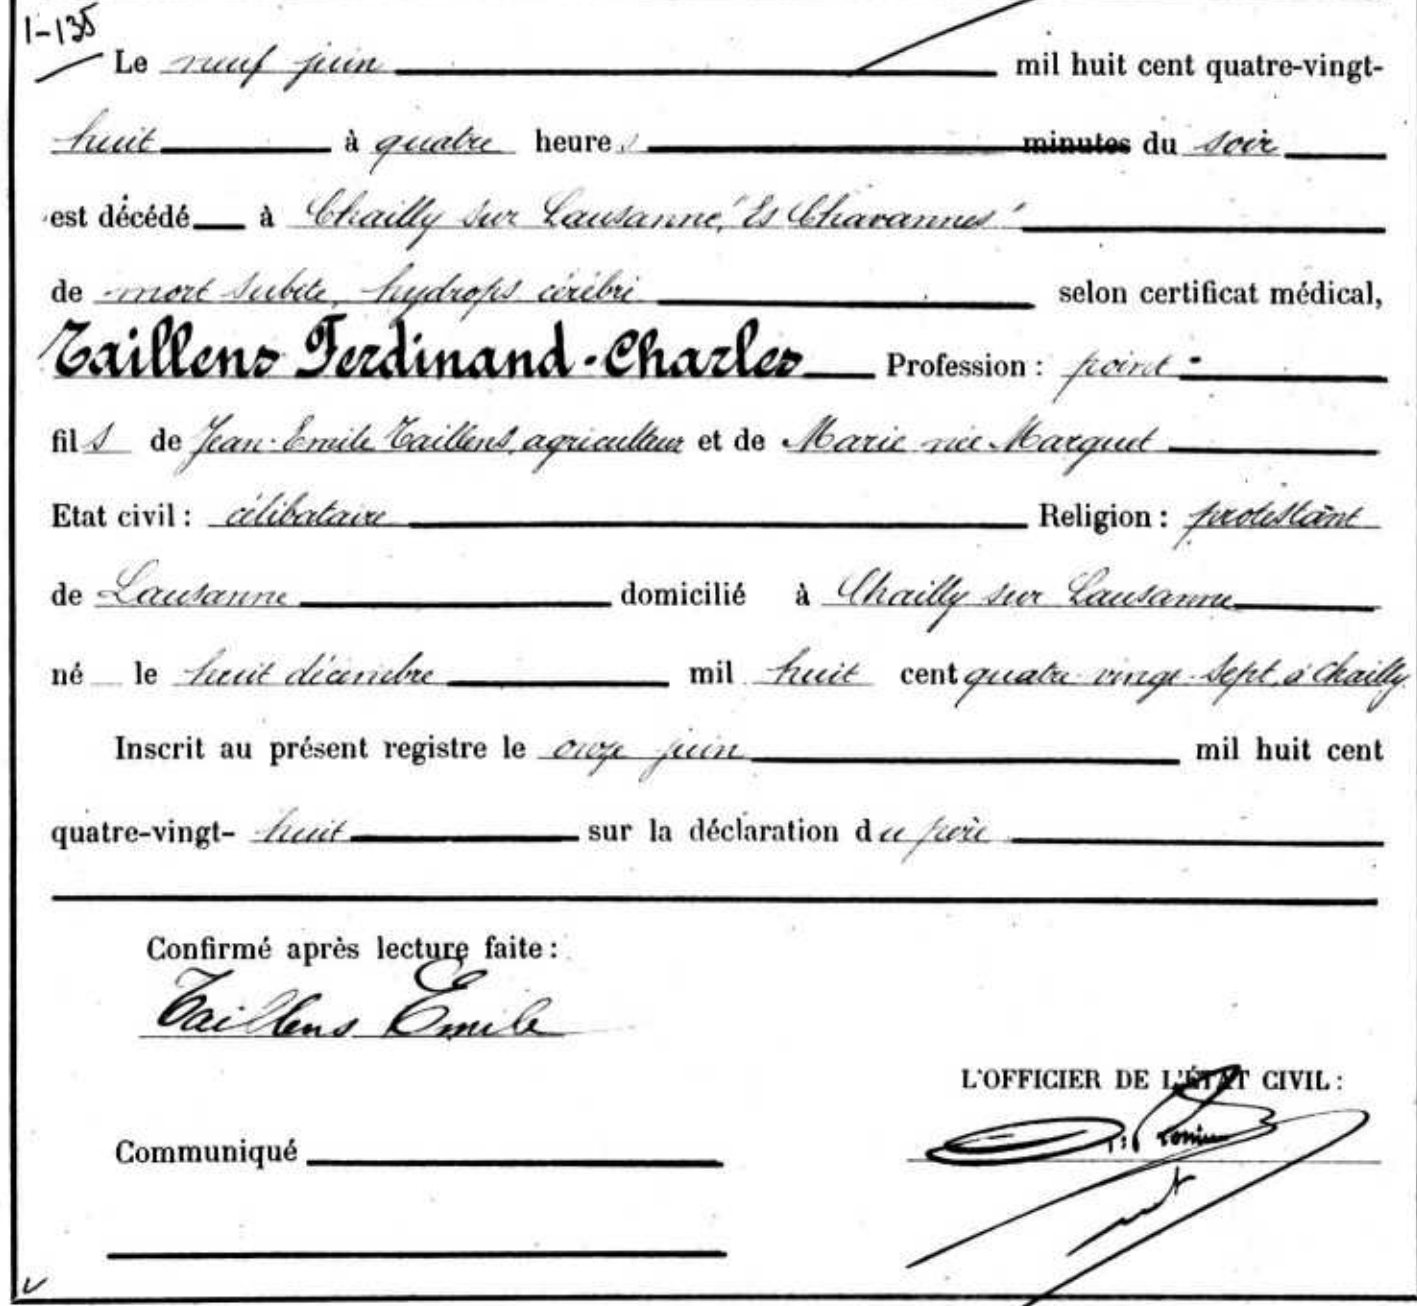 1-135
Le neuf juin mil huit cent quatre-vingt-
huit à quatre heures minutes du soir
est décédé à Chailly sur Lausanne, "Es Chavannes"
de mort subite, hydrops cérébri selon certificat médical,
Taillens Ferdinand-Charles Profession : point -
fils de Jean-Emile Taillens, agriculteur et de Marie née Marguet
Etat civil : célibataire Religion : protestant
de Lausanne domicilié à Chailly sur Lausanne
né le huit décembre mil huit cent quatre vingt-sept, à Chailly
Inscrit au présent registre le onze juin mil huit cent
quatre-vingt- huit sur la déclaration du père
Confirmé après lecture faite :
Taillens Emile
L'OFFICIER DE L'ÉTAT CIVIL :
Communiqué